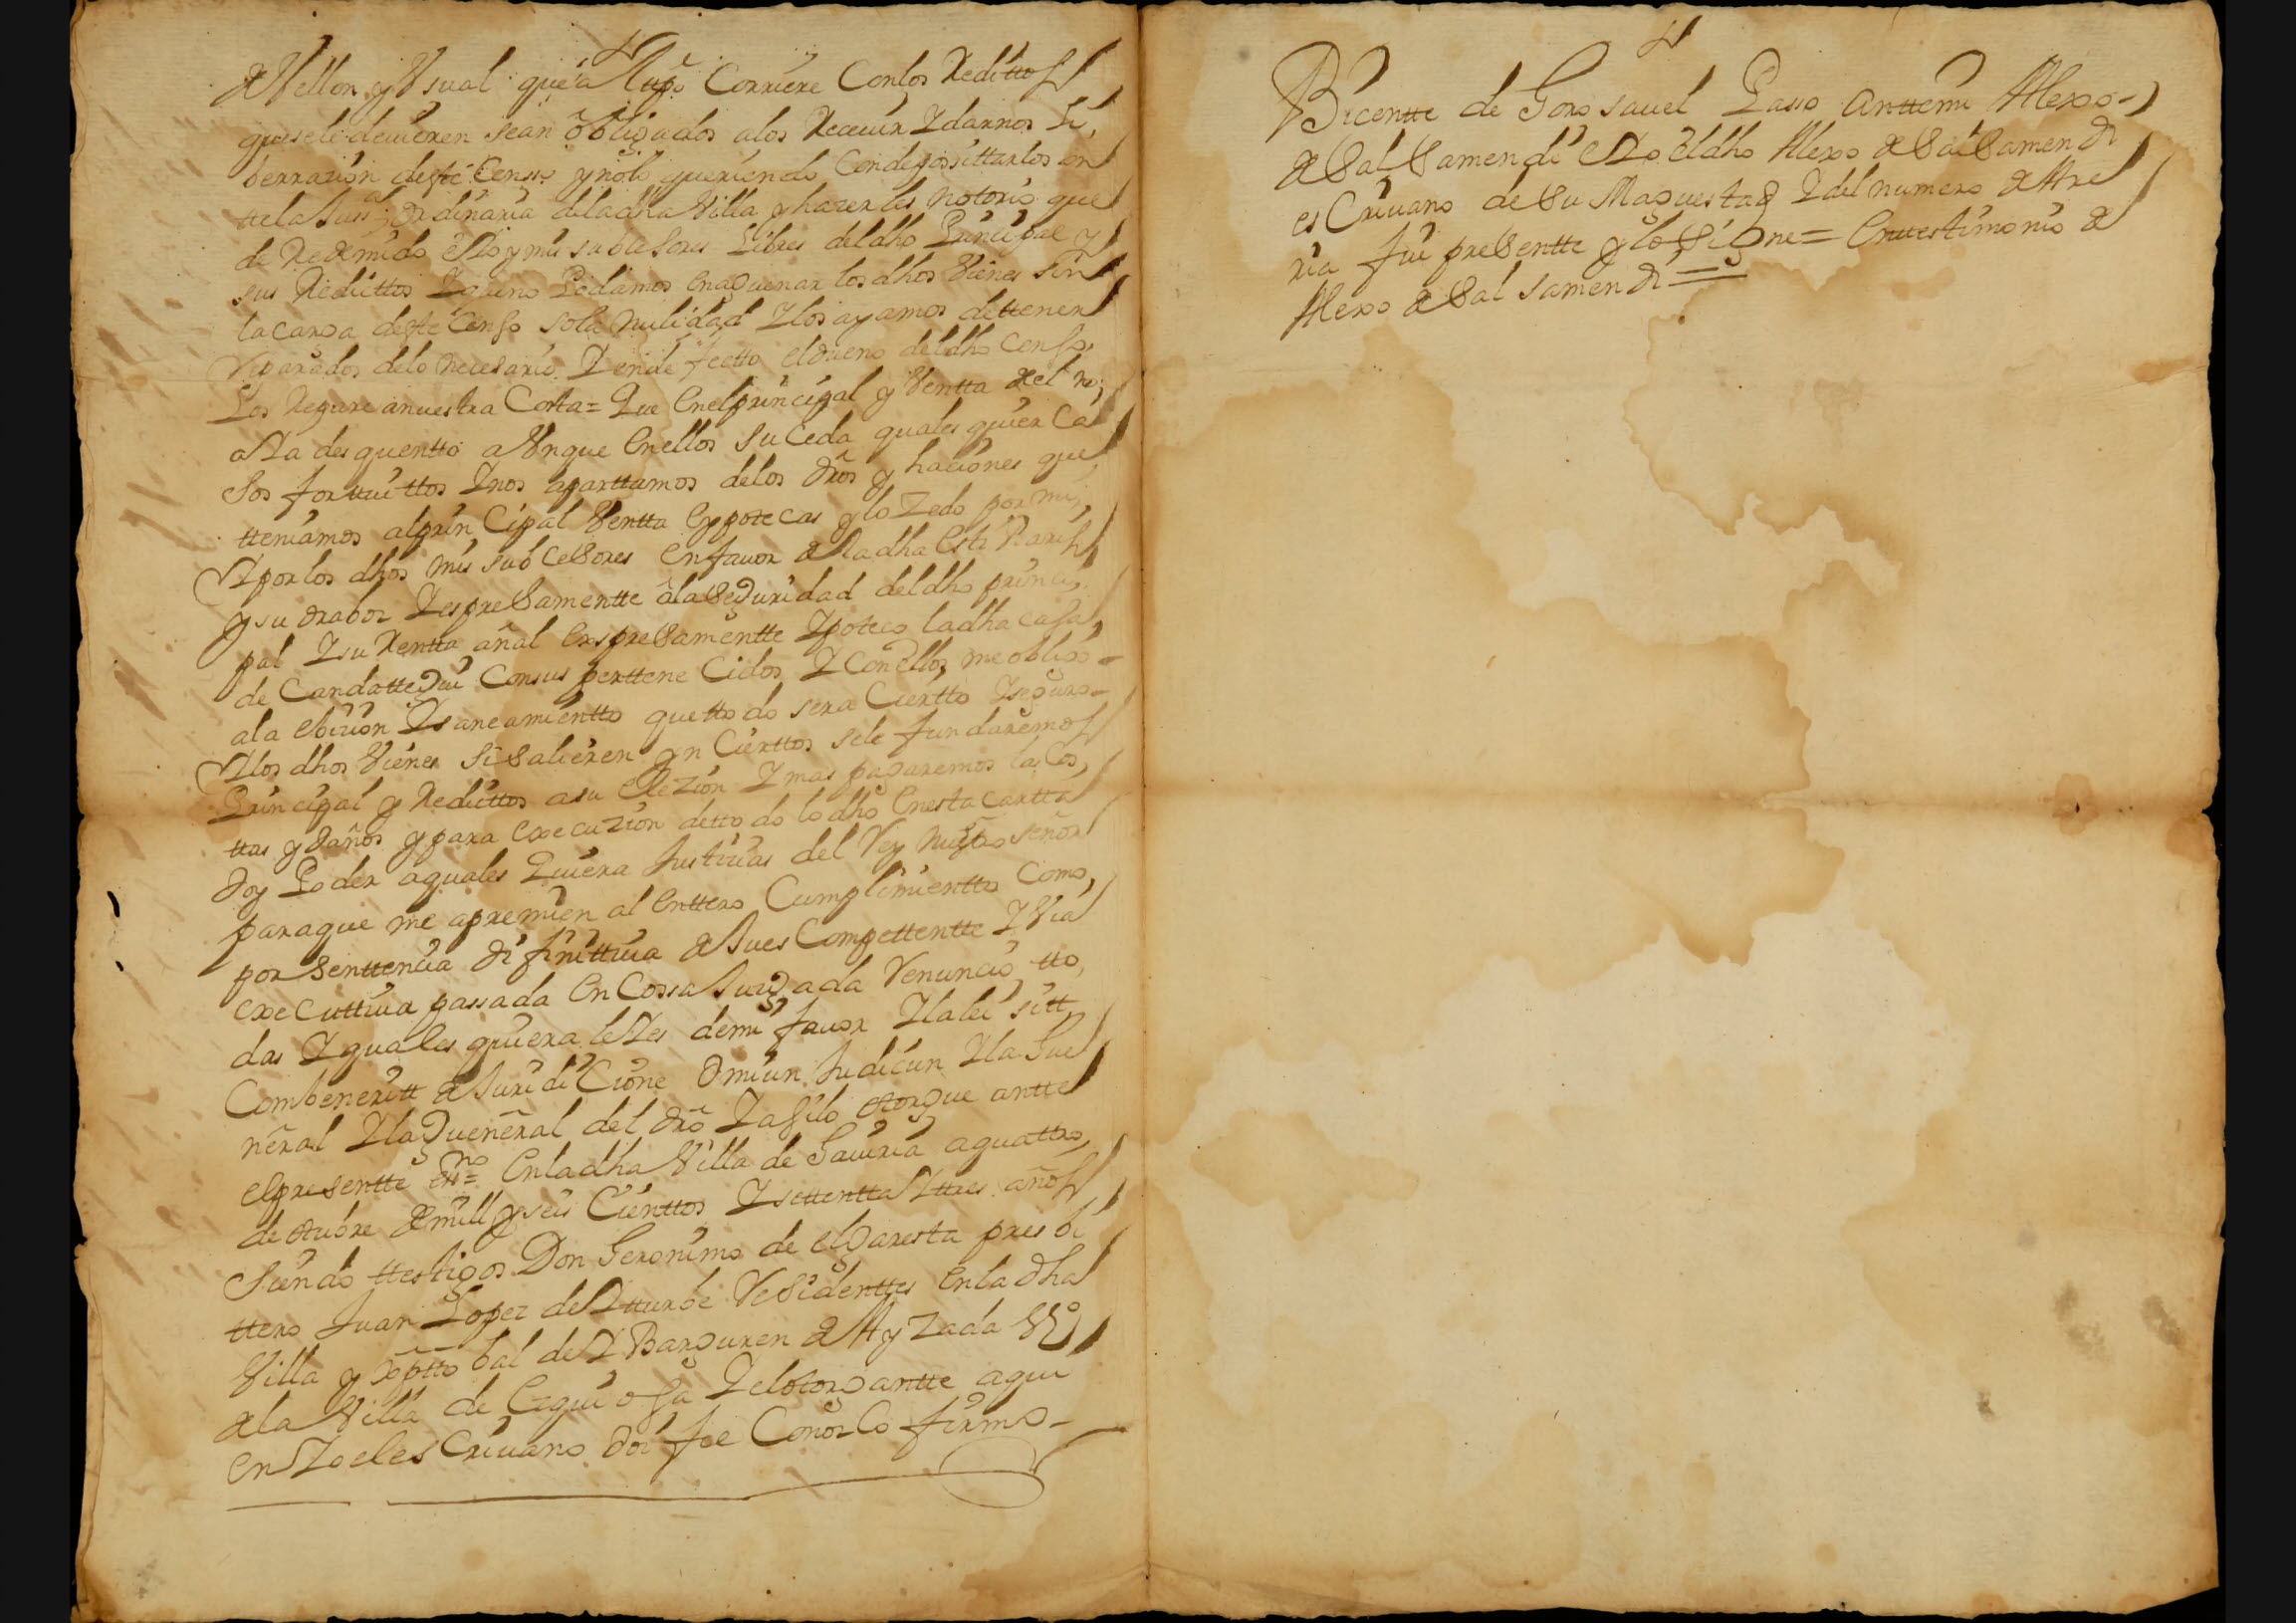 de Vellon y Vsual que a la sazon Corriere Con los Redittos
que se le deuieren sean obligados a los Receuir Y darnos li,
berrazion deste Censo y no lo queriendo Con deposittarlos an
tte la Jusa ordinaria de la dha Villa y hazerles notorio que
de Redimido e Yo y mis subcesores Libres del dho Principal y
sus Redittos Y que no Podamos enaguenar los dhos Vienes sin
la carga deste Censo so la nulidad Y los ayamos de ttener
Reparados de lo necesario Y en defectto el dueno del dho censo
Los Repare a nuestra Costa = Que En el principal y Rentta del no
aYa desquentto aVnque En ellos suceda quales quier Ca
sos fortuittos Y nos aparttamos de los dros y haciones que
tteniamos al prin Cipal Rentta Eypotecas y lo Zedo por mi,
Y por los dhos mis subcesores En fauor de la dha
y su orador Y espresamentte a la Seguridad del dho princi,
pal Y su Rentta añal Exspresamentte Ypoteco la dha casa,
de Candattegui Con sus perttene Cidos Y Con ellos me obligo
a la ebizion Y saneamientto que ttodo sera Ciertto Y seguro
Y los dhos Vienes si salieren yn Ciertos se le fundaremos
Principal y Redittos a su eleZion Y mas pagaremos las Cos,
ttas y daños y para ExecuZion de ttodo lo dho En esta cartta
doy Poder a quales Quiera Justizias del Rey nuestro señor
para que me apremien al Enttero Cumplimientto Como,
por Senttencia difinittiua de Jues Compettentte Y Via
Executtiua passada En Cossa Juzgada Renuncio tto,
das Y quales quiera leYes de mi fauor Y la lei sitt,
Combeneritt de Juridi Cione Omiun Judicun Y la Gue
neral Y la Gueneral del dro Y asi lo ottorgue antte
el presentte essno = En la dha Villa de Gauiria a quattro,
de ottubre de mill y seis Cienttos Y settentta Y ttres años
Siendo ttestigos Don Geronimo de elgaresta presbi
ttero Juan Lopez de Ytturbe Residenttes En la dha
Villa y xpttobal de YBarguren de AyZada Vo
de la Villa de Ezquioga Y el ottorgantte a quien
En Yo el esCriuano doi fee ConozCo firmo
Bicentte de Gorosauel Passo Antte mi Alexo
de Sal Samendi e Yo el dho Alexo de Sal Samendi
esCriuano de Su Maguestad Y del numero de Arre
ria fui presentte y lo Signe = En ttestimonio de
Alexo de Sal samendi =